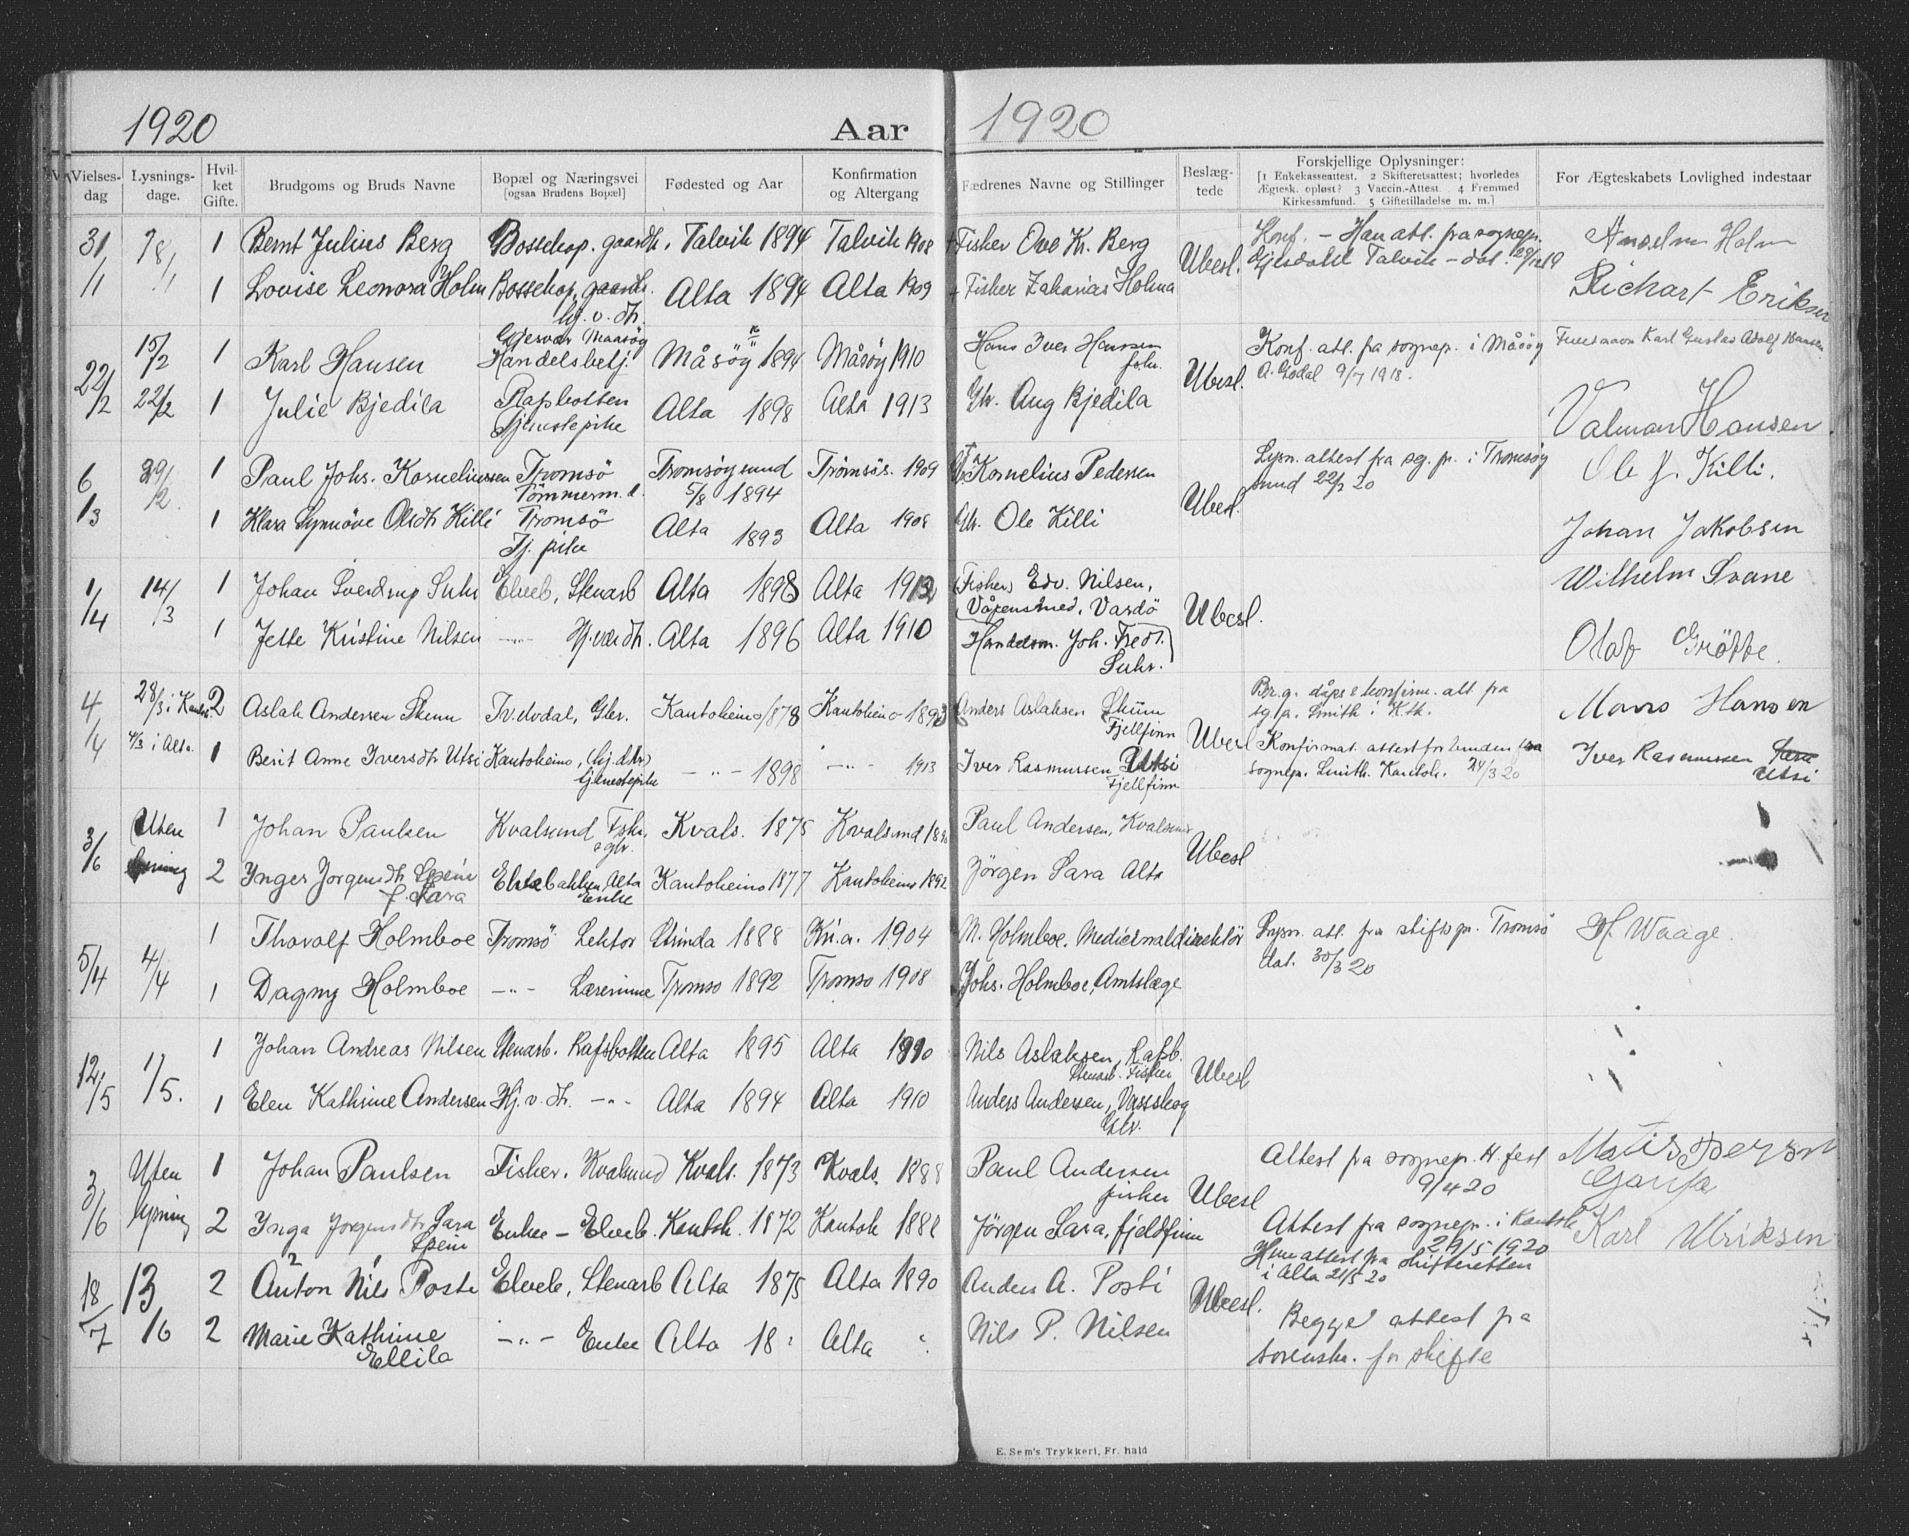 1920 Aar 1920
Vielses-dag Lysnings-dage. Hvil-ket Gifte. Brudgoms og Bruds Navne Bopæl og Næringsvei [ogsaa Brudens Bopæl] Fødested og Aar Konfirmation og Altergang Fædrenes Navne og Stillinger Beslæg-tede Forskjellige Oplysninger: [1 Enkekasseattest. 2 Skifteretsattest; hvorledes Ægtesk. opløst? 3 Vaccin.-Attest. 4 Fremmed Kirkesamfund. 5 Giftetilladelse m. m.] For Ægteskabets Lovlighed indestaar
31/1 1 Bernt Julius Berg Bossekop. gaardb. Talvik 1894 Talvik 1908 Fisher Ove Kr. Berg Ubesl. Konf. - Han att. fra sognepr. Talvik - dat. 29/12 19 Anselm Holm
1 Lovise Leonora Holm Bossekop, gaardb. hj. v. dtr. Alta 1894 Alta 1909 Fisher Zakarias Holm Richart Eriksen
22/2 15/2 1 Karl Hansen Gjesvær Maasøy Handelsbetj. Måsøy 1894 Måsøy 1910 Hans Iver Hansen Ubesl. Konf. att. fra sognep. i Måsøy 9/7 1918. Karl Gustav Adolf Hansen
22/2 1 Julie Bjedila Rafsbotten Tjenestepike Alta 1898 Alta 1913 Gb. Aug Bjedila Valman Hansen
6/3 29/2. 1 Paul Johs. Korneliussen Tromsø Tømmerm. Tromsøysund 5/8 1894 Tromsøs. 1909 Kornelius Pedersen Ubesl. Lysn. attest fra sg. pr. i Tromsøysund 22/2 20 Ole J. Killi.
1 Klara Synnöve Olsdtr Killi Tromsø Tj. pike Alta 1893 Alta 1908 Gb. Ole Killi Johan Jakobsen
1/4 14/3 1 Johan Sverdrup Suhr Elveb, Stenarb Alta 1898 Alta 1913 (Fisher) Edv. Nilsen, Våpensmed, Vardö Ubesl. Wilhelm Svane
1 Jette Kristine Nilsen -"- Hj. vær. dtr. Alta 1896 Alta 1910 Handelsm. Joh. Fredr. Suhr. Olaf Grøtte.
4/4 28/3 i Kautok. 2 Aslak Andersen Skum Tverdal, Gbr. Kautokeino 1878 Kautokeino 1893 Anders Aslaksen Skum Fjellfinn Ubesl Br.g. dåps & konfirm. att. fra sg. p. Smith i K.tk. Mons Hansen
4/3 i Alta. 1 Berit Anne Iversdtr Utsi Kautokeino, (hj. dtr) Tjenestepike -"- 1898 -"- 1913 Iver Rasmussen Utsi Fjellfinn Konfirmat. attest for bruden fra sognepr. Smith. Kautok. 24/3 20 Iver Rasmussen Utsi
3/6 Uten lysning 1 Johan Paulsen Kvalsund Fisker, Kvals. 1875 Kvalsund Paul Andersen, Kvalsund Ubesl
2 Inger Jørgensdtr Spein f. Sara Elvebakken, Alta Enke Kautokeino 1877 Kautokeino 1892 Jørgen Sara Alta
5/4 4/4 1 Thoralf Holmboe Tromsø Lektor Strinda 1888 Kr.a. 1904 M. Holmboe, Medicinaldirektör Lysn. att. fra stiftspr. Tromsø dat. 30/3 20 H. Waage.
1 Dagny Holmboe -"- Lærerinne Tromsø 1892 Tromsø 1908 Johs. Holmboe, Amtslæge
12/5 1/5. 1 Johan Andreas Nilsen Stenarb. Rafsbotten Alta 1895 Alta 1910 Nils Aslaksen, Rafsb. Stenarb. Fisker Ubesl
1 Elen Kathrine Andersen Hj. v. dtr. -"- Alta 1894 Alta 1910 Anders Andersen, Gbr.
3/6 Uten lysning 1 Johan Paulsen Fisher, Kvalsund Kvals. 1873 Kvals. 1888 Paul Andersen fisker Ubesl Attest fra sognep. H. fest 9/4 20
2 Inga Jørgensdtr Sara Spein Enke - Elveb. Kautok. 1872 Kautok 1888 Jørgen Sara, fjeldfinn Attest fra sognepr. i Kautok 29/5 1920 Hun attest fra skifteretten i Alta 21/5 20 Karl Ulriksen
18/7 13/6 2 Anton Nils Posti Elveb, Stenarb Alta 1875 Alta 1890 Anders A. Posti Ubesl. Begge attest fra sorenskr. for skifte
2 Marie Kathrine Ellila -"- Enke Alta 18 Alta Nils P. Nilsen
E. Sem's Trykkeri, Fr. hald